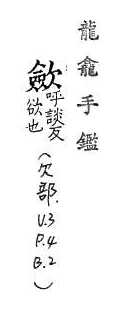 龍龕手鑑
歛呼談反
欲也
(欠部. V.3 P.4 B.2)